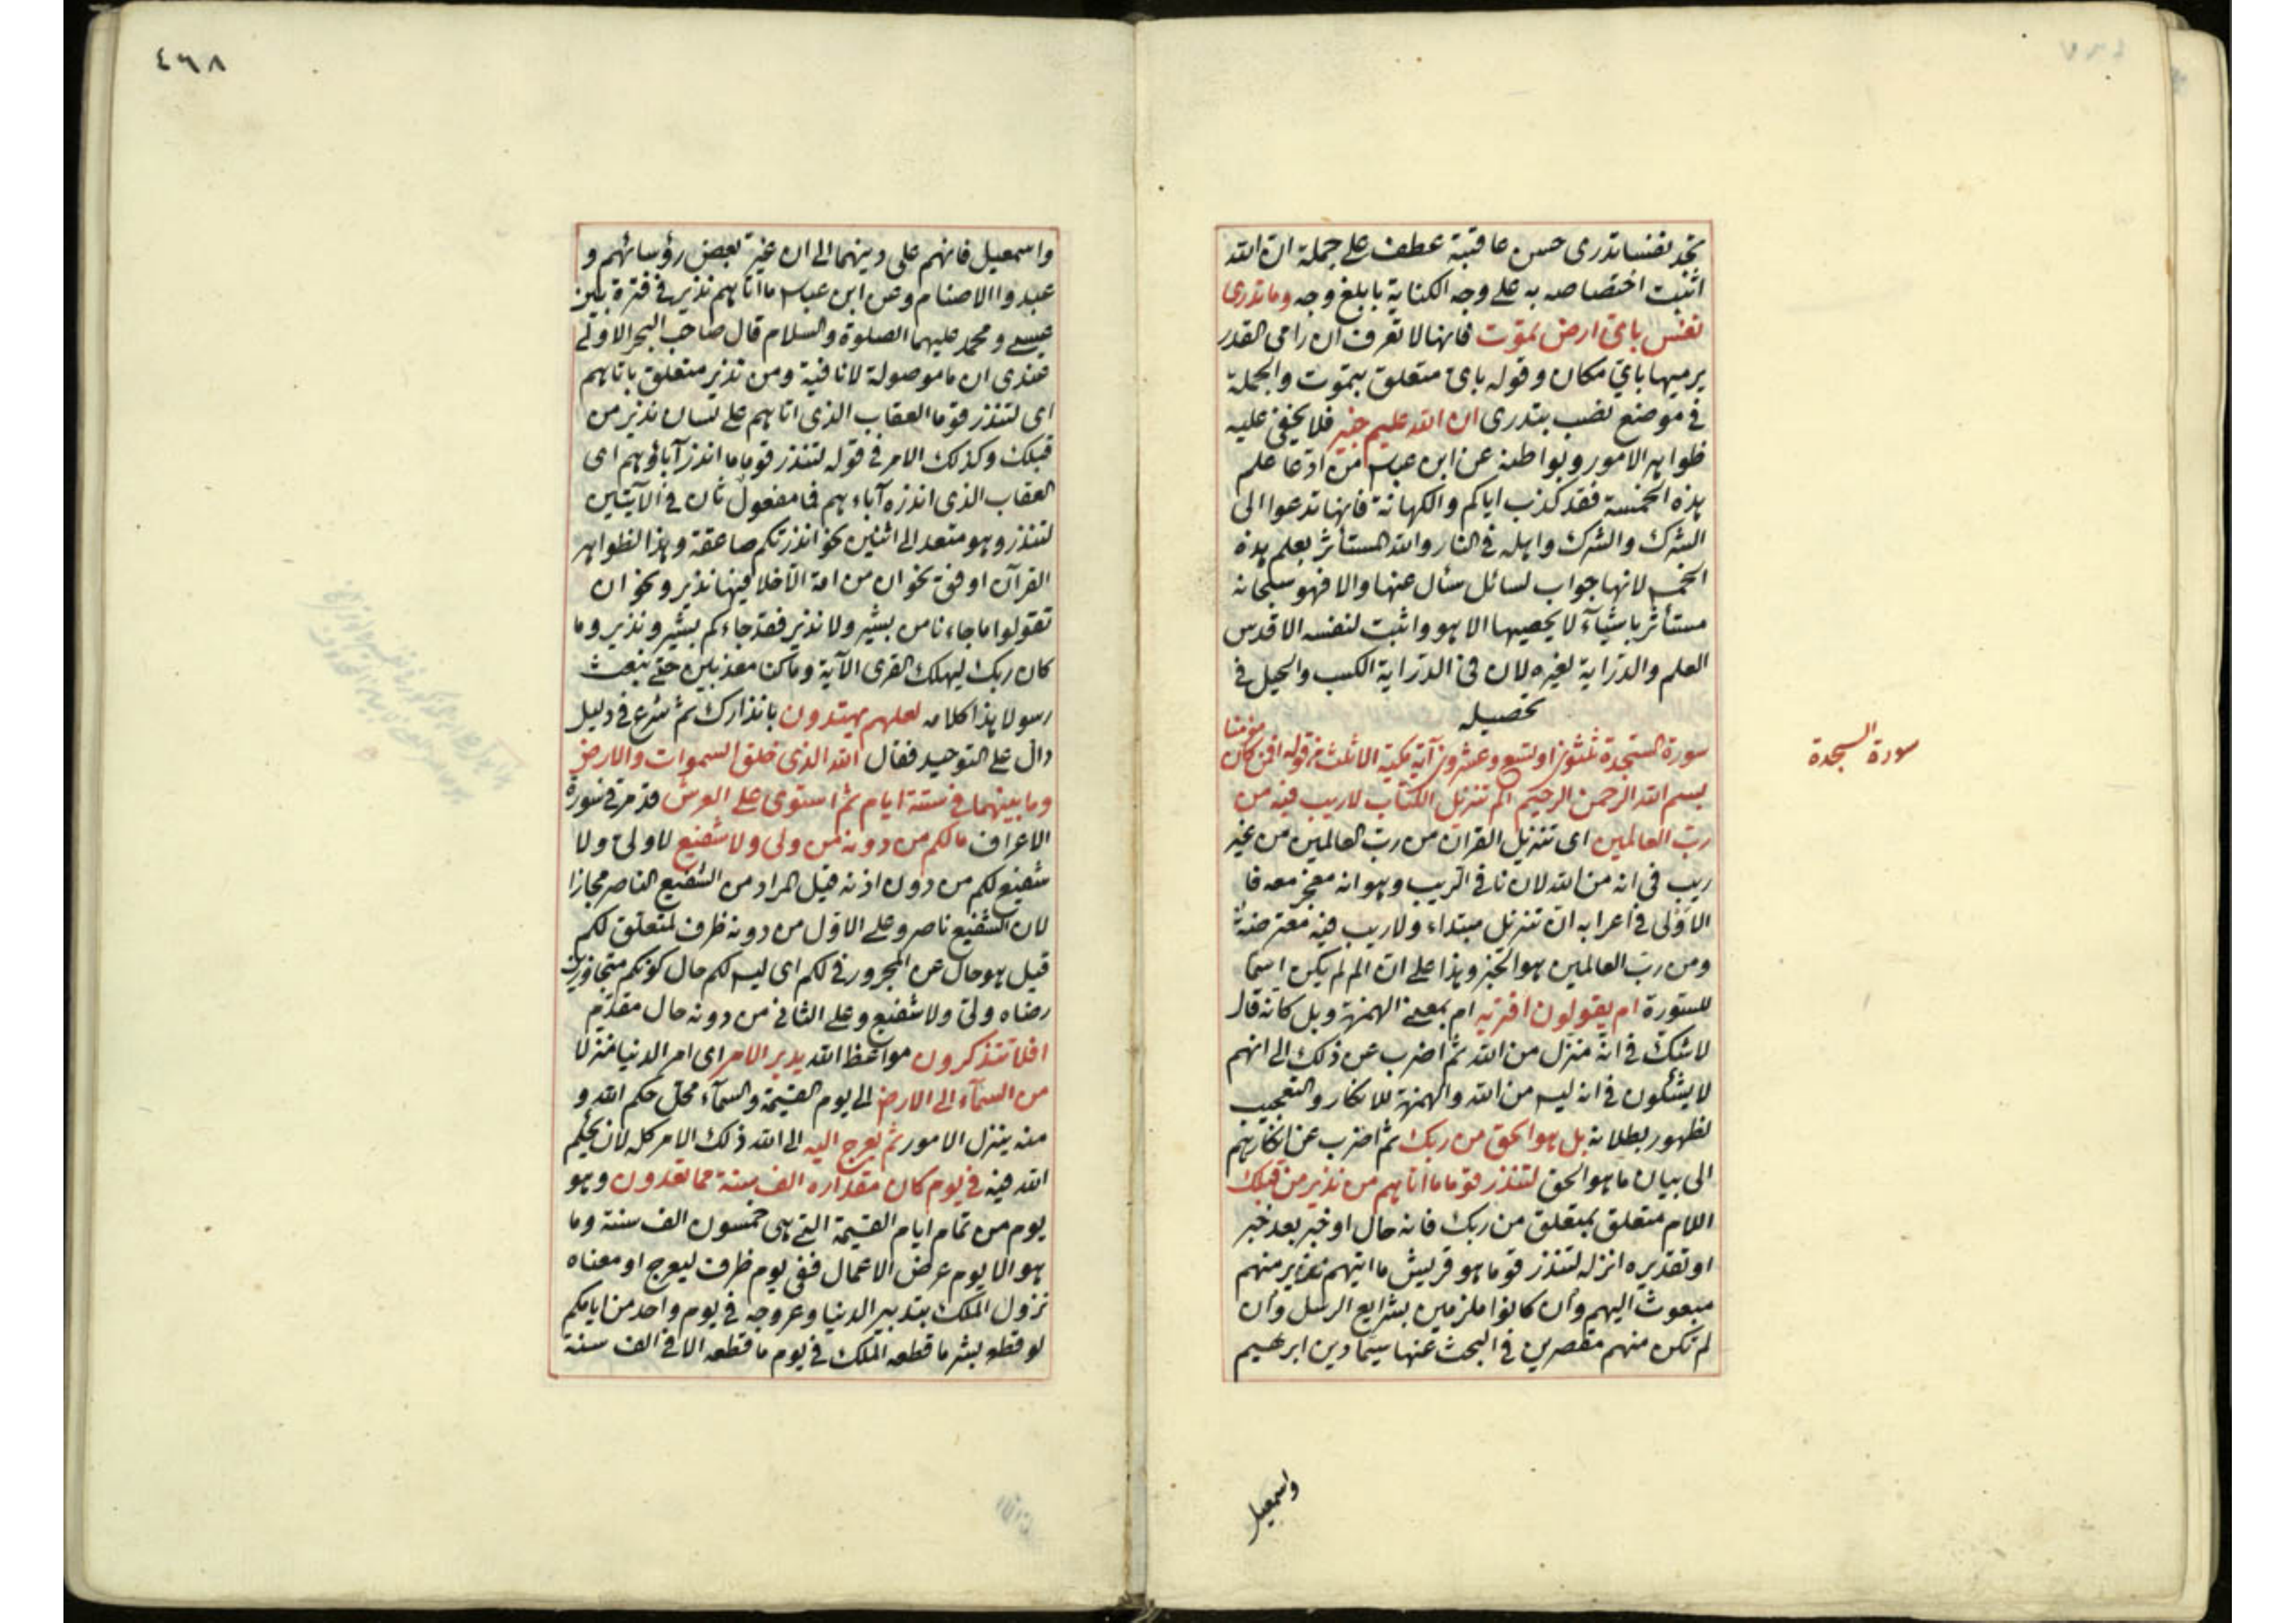 تجد نفسا تدرى حسن عاقبة عطف على جملة ان الله
اثبت اختصاصه به على وجه الكناية بابلغ وجه وما تدرى
نفس باى ارض تموت فانها لا تعرف ان رامى القدر
يرميها باى مكان وقوله باى متعلق بتموت والجملة
فى موضع نصب بتدرى ان الله عليم خبير فلا يخفى عليه
ظواهر الامور وبواطنه عن ابن عباس من ادعا علم
هذه الخمسة فقد كذب اياكم والكهانة فانها تدعوا الى
الشرك والشرك واهله فى النار والله المستأثر بعلم هذه
الخمس لانها جواب لسائل سأل عنها والا فهو سبحانه
مستأثر باشيآء لا يحصيها الا هو واثبت لنفسه الاقدس
العلم والدراية لغيره لان فى الدراية الكسب والحيل فى
تحصيله
مؤمنا
سورة السجدة ثلثون او تسع وعشرون آية مكية الا ثلث من قوله افمن كان
سورة السجدة
بسم الله الرحمن الرحيم الم تنزيل الكتاب لا ريب فيه من
رب العالمين اى تنزيل القرآن من رب العالمين من غير
ريب فى انه من الله لان نافى الريب وهو انه معجز معه فا
الاولى فى اعرابه ان تنزيل مبتداء ولا ريب فيه معترضة
ومن رب العالمين هو الخبر وهذا على ان الم لم يكن اسما
للسورة ام يقولون افتريه ام بمعنى الهمزة وبل كانه قال
لا شك فى انه منزل من الله ثم اضرب عن ذلك الى انهم
لا يشكون فى انه ليس من الله والهمزة للانكار والتعجيب
لظهور بطلانه بل هو الحق من ربك ثم اضرب عن انكارهم
الى بيان ما هو الحق لتنذر قوما ما اتاهم من نذير من قبلك
اللام متعلق بمتعلق من ربك فانه حال او خبر بعد خبر
او تقديره انزله لتنذر قوما هو قريش ما اتيهم نذير منهم
مبعوث اليهم وان كانوا ملزمين بشرايع الرسل وان
لم تكن منهم مقصرين فى البحث عنها سيما دين ابرهيم
واسمعيل
٤٦٨
واسمعيل فانهم على دينهما الى ان غير بعض رؤسائهم و
عبدوا الاصنام وعن ابن عباس ما اتاهم نذير فى فترة بين
عيسى ومحمد عليهما الصلوة والسلام قال صاحب البحر الاولى
عندى ان ما موصولة لا نافية ومن نذير متعلق باتاهم
اى لتنذر قوما العقاب الذى اتاهم على لسان نذير من
قبلك وكذلك الامر فى قوله لتنذر قوما ما انذر آباؤهم اى
العقاب الذى انذره آباءهم فما مفعول ثان فى الآيتين
لتنذر وهو متعد الى اثنين نحو انذرتكم صاعقة وهذا لظواهر
القرآن اوفق نحو ان من امة الا خلا فيها نذير ونحو ان
تقولوا ما جاءنا من بشير ولا نذير فقد جاءكم بشير ونذير وما
كان ربك ليهلك القرى الآية وما كنا معذبين حتى نبعث
رسولا هذا كلامه لعلهم يهتدون بانذارك ثم شرع فى دليل
دال على التوحيد فقال الله الذى خلق السموات والارض
وما بينهما فى ستة ايام ثم استوى على العرش قد مر فى سورة
الاعراف ما لكم من دونه من ولى ولا شفيع لا ولى ولا
شفيع لكم من دون اذنه قيل المراد من الشفيع الناصر مجازا
لان الشفيع ناصر وعلى الاول من دونه ظرف لمتعلق لكم
قيل هو حال عن المجرور فى لكم اى ليس لكم حال كونكم متجاوزين
رضاه ولى ولا شفيع وعلى الثانى من دونه حال مقدم
افلا تتذكرون مواعظ الله يدبر الامر اى امر الدنيا منزلا
من السمآء الى الارض الى يوم القيمة والسمآء محل حكم الله و
منه ينزل الامور ثم يعرج اليه الى الله ذلك الامر كله لان يحكم
الله فيه فى يوم كان مقداره الف سنة مما تعدون وهو
يوم من تمام ايام القيمة التى هى خمسون الف سنة وما
هو الا يوم عرض الاعمال ففى يوم ظرف ليعرج او معناه
نزول الملك بتدبير الدنيا وعروجه فى يوم واحد من ايامكم
لو قطع بشر ما قطعه الملك فى يوم ما قطعه الا فى الف سنة